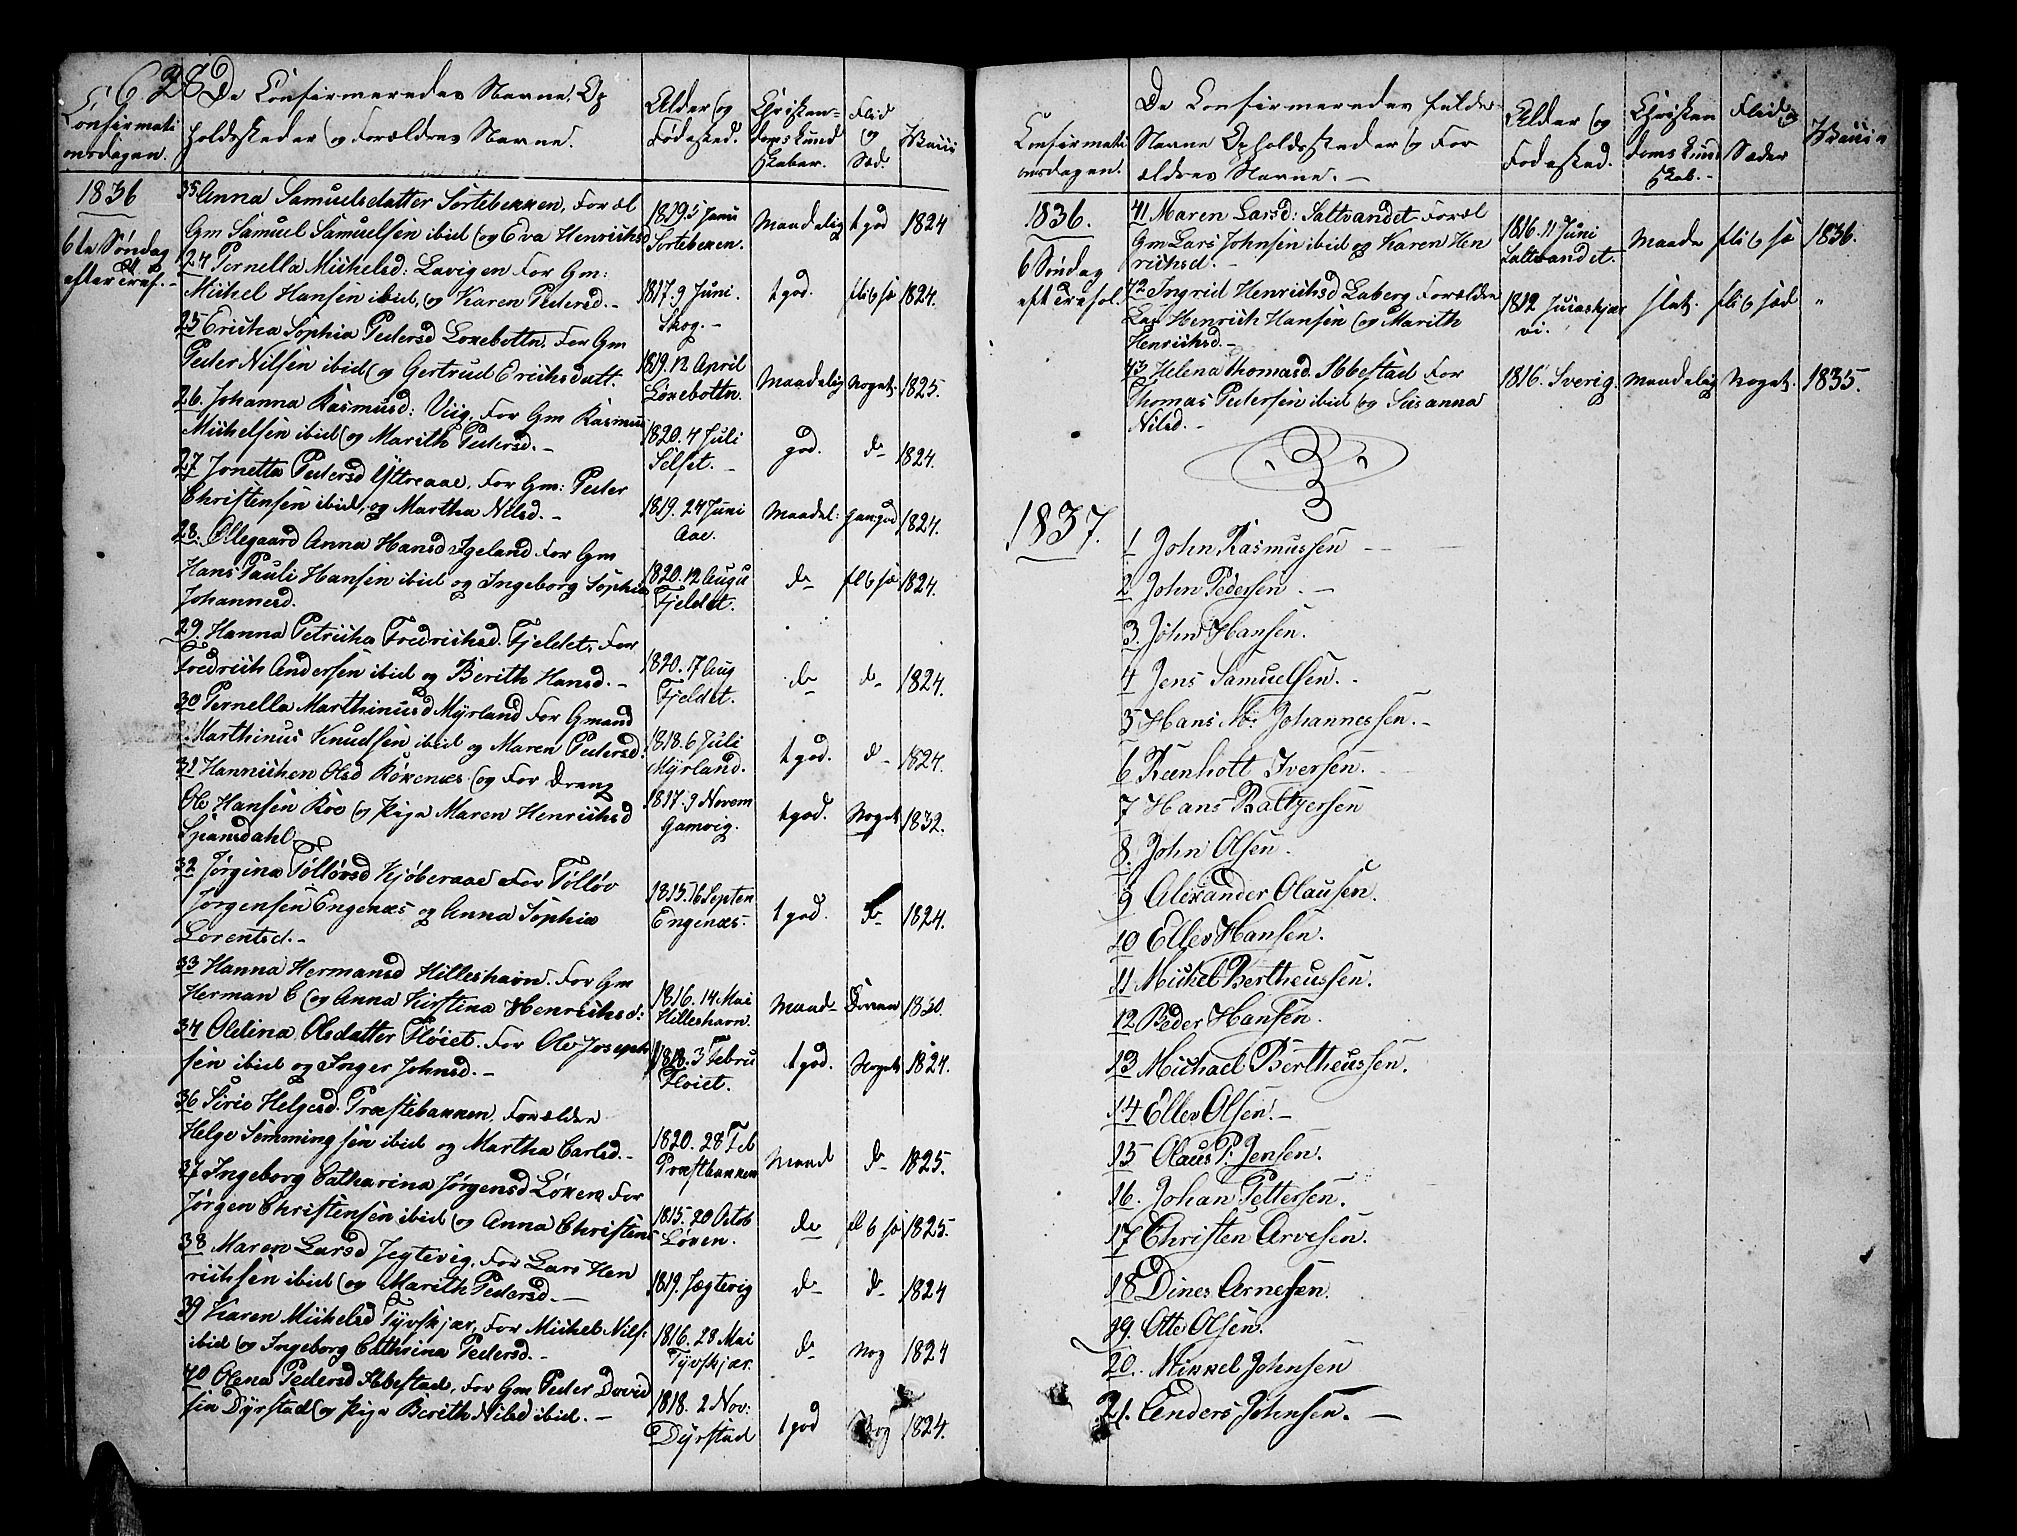 628
Confirmati
onsdagen.
De Confirmeredes Navne, Op
holdssteder og Forældres Navne.
Alder og
Fødested.
Christen=
doms Kund
skaber.
Flid
og
Sæd.
1836
6te Søndag
efter Tref.
35 Anna Samuelsdatter Sortebekken, Foræl
Gm Samuel Samuelsen ibid og Eva Henrichsd
1819 5 Janu
Sortebeken.
Maadelig
t god
1824
24 Pernella Michelsd: Lavigen For Gm:
Mickel Hansen ibid, og Karen Pedersd. -
1817. 9 Juni.
Skog. -
t god.
fli b sæ
1824.
25 Ericka Sophia Pedersd Loxebottn. For Gm
Peder Nilsen ibid og Gertrud Erichsdatt.
1819. 12 April
Loxebottn.
Maadelig
Noget
1825.
26. Johanna Rasmusd: Viig. For Gm Rasmus
Michelsen ibid og Marith Pedersd. -
1820. 4 Juli
Selset. -
god.
do
1824.
27 Jonetta Pedersd Yttreaae. For Gm: Peder
Christensen ibid, og Martha Nilsd. -
1819. 24 Juni
Aae.
Maadel:
1824.
28. Ollegaard Anna Hansd Igeland For Gm
Hans Pauli Hansen ibid og Ingeborg Sophia
Johannesd.
1820. 12 Augu
Fjeldet.
do
fl b sæ
1824.
29. Hanna Petricka Fredrichsd. Fjeldet, For
Fredrich Andersen ibid og Berith Hansd. -
1820. 17 Aug
Fjeldet.
do
do
1824.
30 Pernella Marthinusd Myrland For Gmand
Marthinus Knudsen ibid og Maren Pedersd.
1818. 6 Juli
Myrland.
t god.
do
1824.
31 Hannichen Olsd Roxenæs og For Dreng
Ole Hansen Roe og Pige Maren Henrichsd
Spansdahl
1817. 9 Novem
Gamvig.
t god.
Noget
1832.
32 Jørgina Tollovsd Kjøberaae For Tolløv
Jørgensen Engenæs og Anna Sophia
Lorentsd. -
1815. 16 Septen
Engenæs.
t god.
do
1824.
33 Hanna Hermansd Hilleshavn. For Gm
Herman C og Anna Kirstina Henrichsd:
1816. 14 Mai
Hilleshavn.
Maad-
1830.
34 Oldina Olsdatter Fløiet. For Ole Joseph
sen ibid og Inger Johnsd. -
1818. 3 Febru
Fløiet.
t god.
Noget
1824.
36 Siric Helgesd. Præstebakken. Forældre
Helge Semmingsen ibid og Martha Carlsd. -
1820. 28 Feb
Præstbakken
Maad
do
1825.
37 Ingeborg Catharina Jørgensd Løxen For
Jørgen Christensen ibid og Anna Christens
1815. 20 Octob
Løxen.
do
fl b sæ
1825.
38 Maren Larsd Jegtevig. For Lars Hen
richsen ibid og Marith Pedersd. -
1819. Jægtevig
do
do
1824
39 Karen Michelsd Tyvskjær, For Michel Nils:
ibid og Ingeborg Cathrina Pedersd. -
1816. 28 Mai
Tyvskjær.
do
Nog
1824
40 Olena Pedersd Abbestad, For Gm Peder David
sen Dyrstad og Pige Berith Nilsd ibid. -
1818. 2 Nov:
Dyrstad
t god
Nog
1824.
Confirmati
onsdagen.
De Confirmeredes fulde
Navne Opholdssteder og For
ældres Navne. -
Alder og
Fødested.
Christen
doms Kund
skab. -
Flid og
Sæder
1836.
6 Søndag
eft Trefol.
41 Maren Larsd: Saltvandet Foræl
Gm Lars Johnsen ibid og Karen Hen
richsd. -
1816. 11 Juni
Saltvandet.
Maade
fli b sæ
1836.
42 Ingrid Henrichsd Laberg Forældre
Lap Henrich Hansen og Marith
Henrichsd. -
1812
slet.
fli b sæd
"
43 Helena Thomasd. Abbestad For
Thomas Pedersen ibid og Susanna
Nilsd. -
1816. Sverig.
Maadelig
Noget.
1835.
1837.
1 John Rasmussen - -
2 John Pedersen. -
3. John Hansen.
4 Jens Samuelsen. -
5 Hans No: Johannessen. -
6 Reenholt Iversen. -
7 Hans Baltzersen
8. John Olsen.
9 Alexander Olaussen.
10 Eller Hansen.
11 Mickel Bertheussen.
12 Peder Hansen.
13 Michael Bertheussen.
14 Eller Olsen. -
15 Olaus P. Jensen.
16. Johan Pettersen.
17 Christen Arvesen.
18 Dines Arnesen.
19. Otte Olsen.
20. Mikkel Johnsen
21. Anders Johnsen. -